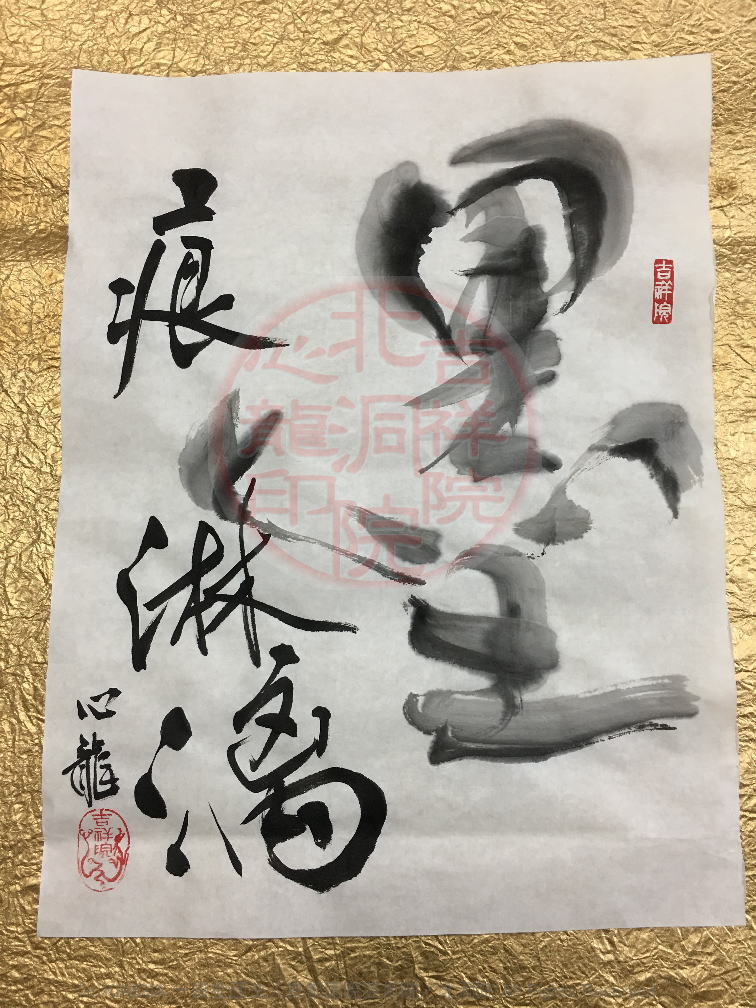 墨
痕淋漓
心龍
吉祥院
吉祥院
吉祥院
北洞院
心龍印